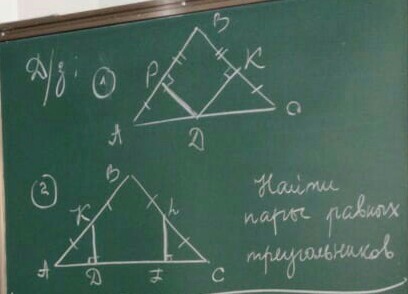 Д/з:
①
B
P
K
A
D
C
②
B
K
L
A
D
F
C
Найти
пары равных
треугольников